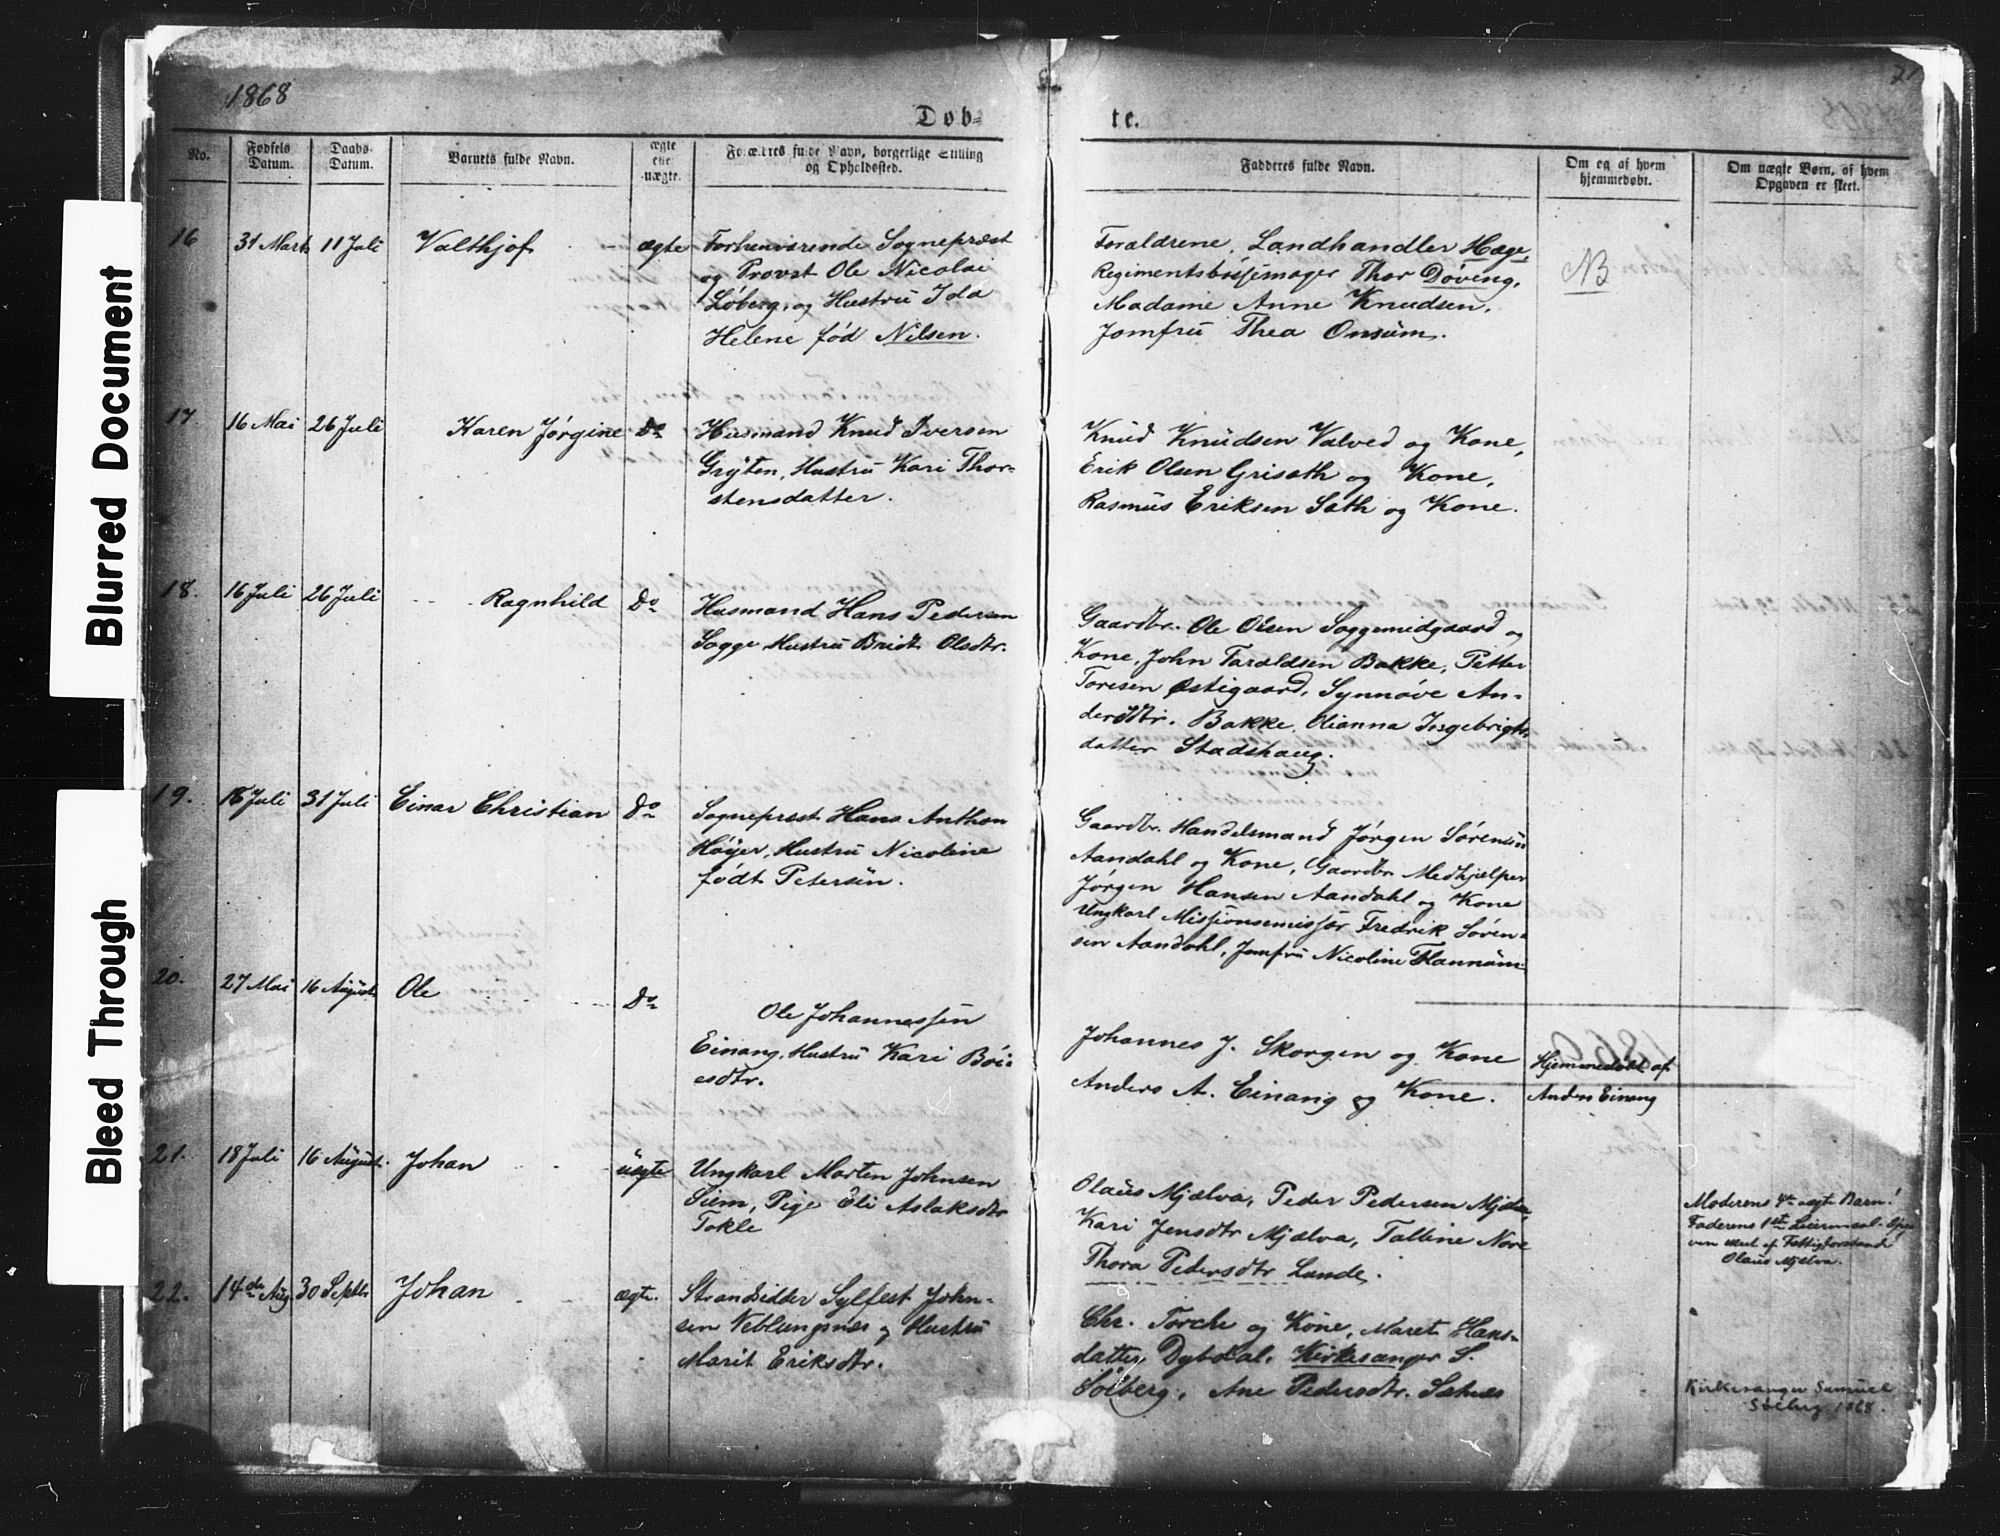 Blurred Document
Bleed Through
1868
Døb-
te.
No.
Fødsels
Datum.
Daabs-
Datum.
Barnets fulde Navn.
ægte
ell.
uægte.
Forældres fulde Navn, borgerlige Stilling
og Opholdssted.
Fadderes fulde Navn.
Om og af hvem
hjemmedøbt.
Om uægte Børn, af hvem
Opgaven er skeet.
16 31 Marts 11 Juli Valthjof ægte
Forhenværende Sognepræst
og Provst Ole Nicolai
Løberg, og Hustru Ida
Helene fød Nilsen.
Forældrene, Landhandler Hage,
Regimentsbøssemager Thor Døving,
Madame Anne Knudsen,
Jomfru Thea Onsüm.
NB
17. 16 Mai 26 Juli Karen Jørgine Do
Husmand Knud Iversen
Grÿten, Hustru Kari Thor-
stensdatter.
Knud Knudsen Valved og Kone,
Erik Olsen Griseth og Kone,
Rasmus Eriksen Sath og Kone.
18. 16 Juli 26 Juli Ragnhild Do
Husmand Hans Pedersen
Sogge Hustru Bridt Olsdtr.
Gaardbr. Ole Olsen Soggemidgaard og
Kone, John Taraldsen Bakke, Petter
Toresen Østigaard, Synnøve An-
dersdtr. Bakke, Olianna Ingebrigts-
datter Stadshaug.
19. 18 Juli 31 Juli Einar Christian Do
Sognepræst Hans Anthon
Høÿer, Hustru Nicoline
født Petersen.
Gaardbr. Handelsmand Jørgen Sørensen
Aandahl og Kone, Gaardbr Medhjælper
Jørgen Hansen Aandahl og Kone
Ungkarl Missionsemissær Fredrik Søren-
sen Aandahl, Jomfru Nicoline
20. 27 Mai 16 August Ole Do
Ole Johannessen
Einang, Hustru Kari Bøi-
esdtr.
Johannes J. Skorgen og Kone
Anders A. Einang og Kone.
Hjemmedøbt af
Anders Einang
21. 18 Juli 16 August Johan uægte
Ungkarl Morten Johnsen
Siem, Pige Eli Aslaksdtr
Tokle
Olaus Mjælva, Peder Pedersen Mjælva,
Kari Jensdtr Mjælva, Talline Nore
Thora Pedersdtr Lunde.
Moderens 4de uægte Barn!
Faderens 1ste Leiermaal. Opga-
ven skeet af Fattigforstand.
Olaus Mjælva.
22. 14de Aug. 30 Septbr Johan ægte.
Strandsidder Sylfest John-
sen Veblungsnæs og Hustru
Marit Eriksdtr.
Chr. Torche og Kone, Maret Hans-
datter Dybdal. Kirkesanger S.
Solberg, Ane Pedersdtr. Sætnes
Kirkesanger Samuel
Solberg 1868.